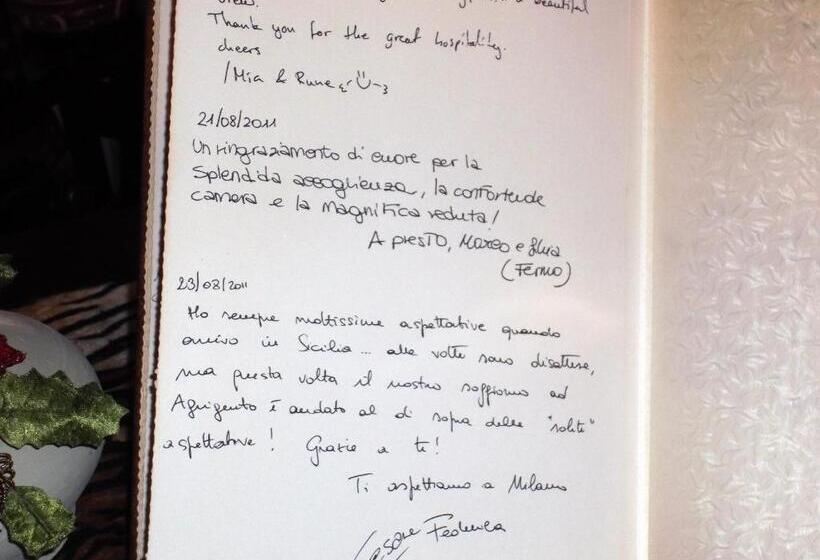 view. beautiful
Thank you for the great hospitality.
cheers
/Mia & Rune
21/08/2011
Un ringraziamento di cuore per la
splendida accoglienza, la confortevole
camera e la magnifica veduta!
A PRESTO, Marco e
(Fermo)
23/08/2011
Ho sempre moltissime aspettative quando
arrivo in Sicilia... alle volte sono disattese,
ma questa volta il nostro soggiorno ad
Agrigento è andato al di sopra delle "solite"
aspettative! Grazie a te!
Ti aspettiamo a Milano
Federica